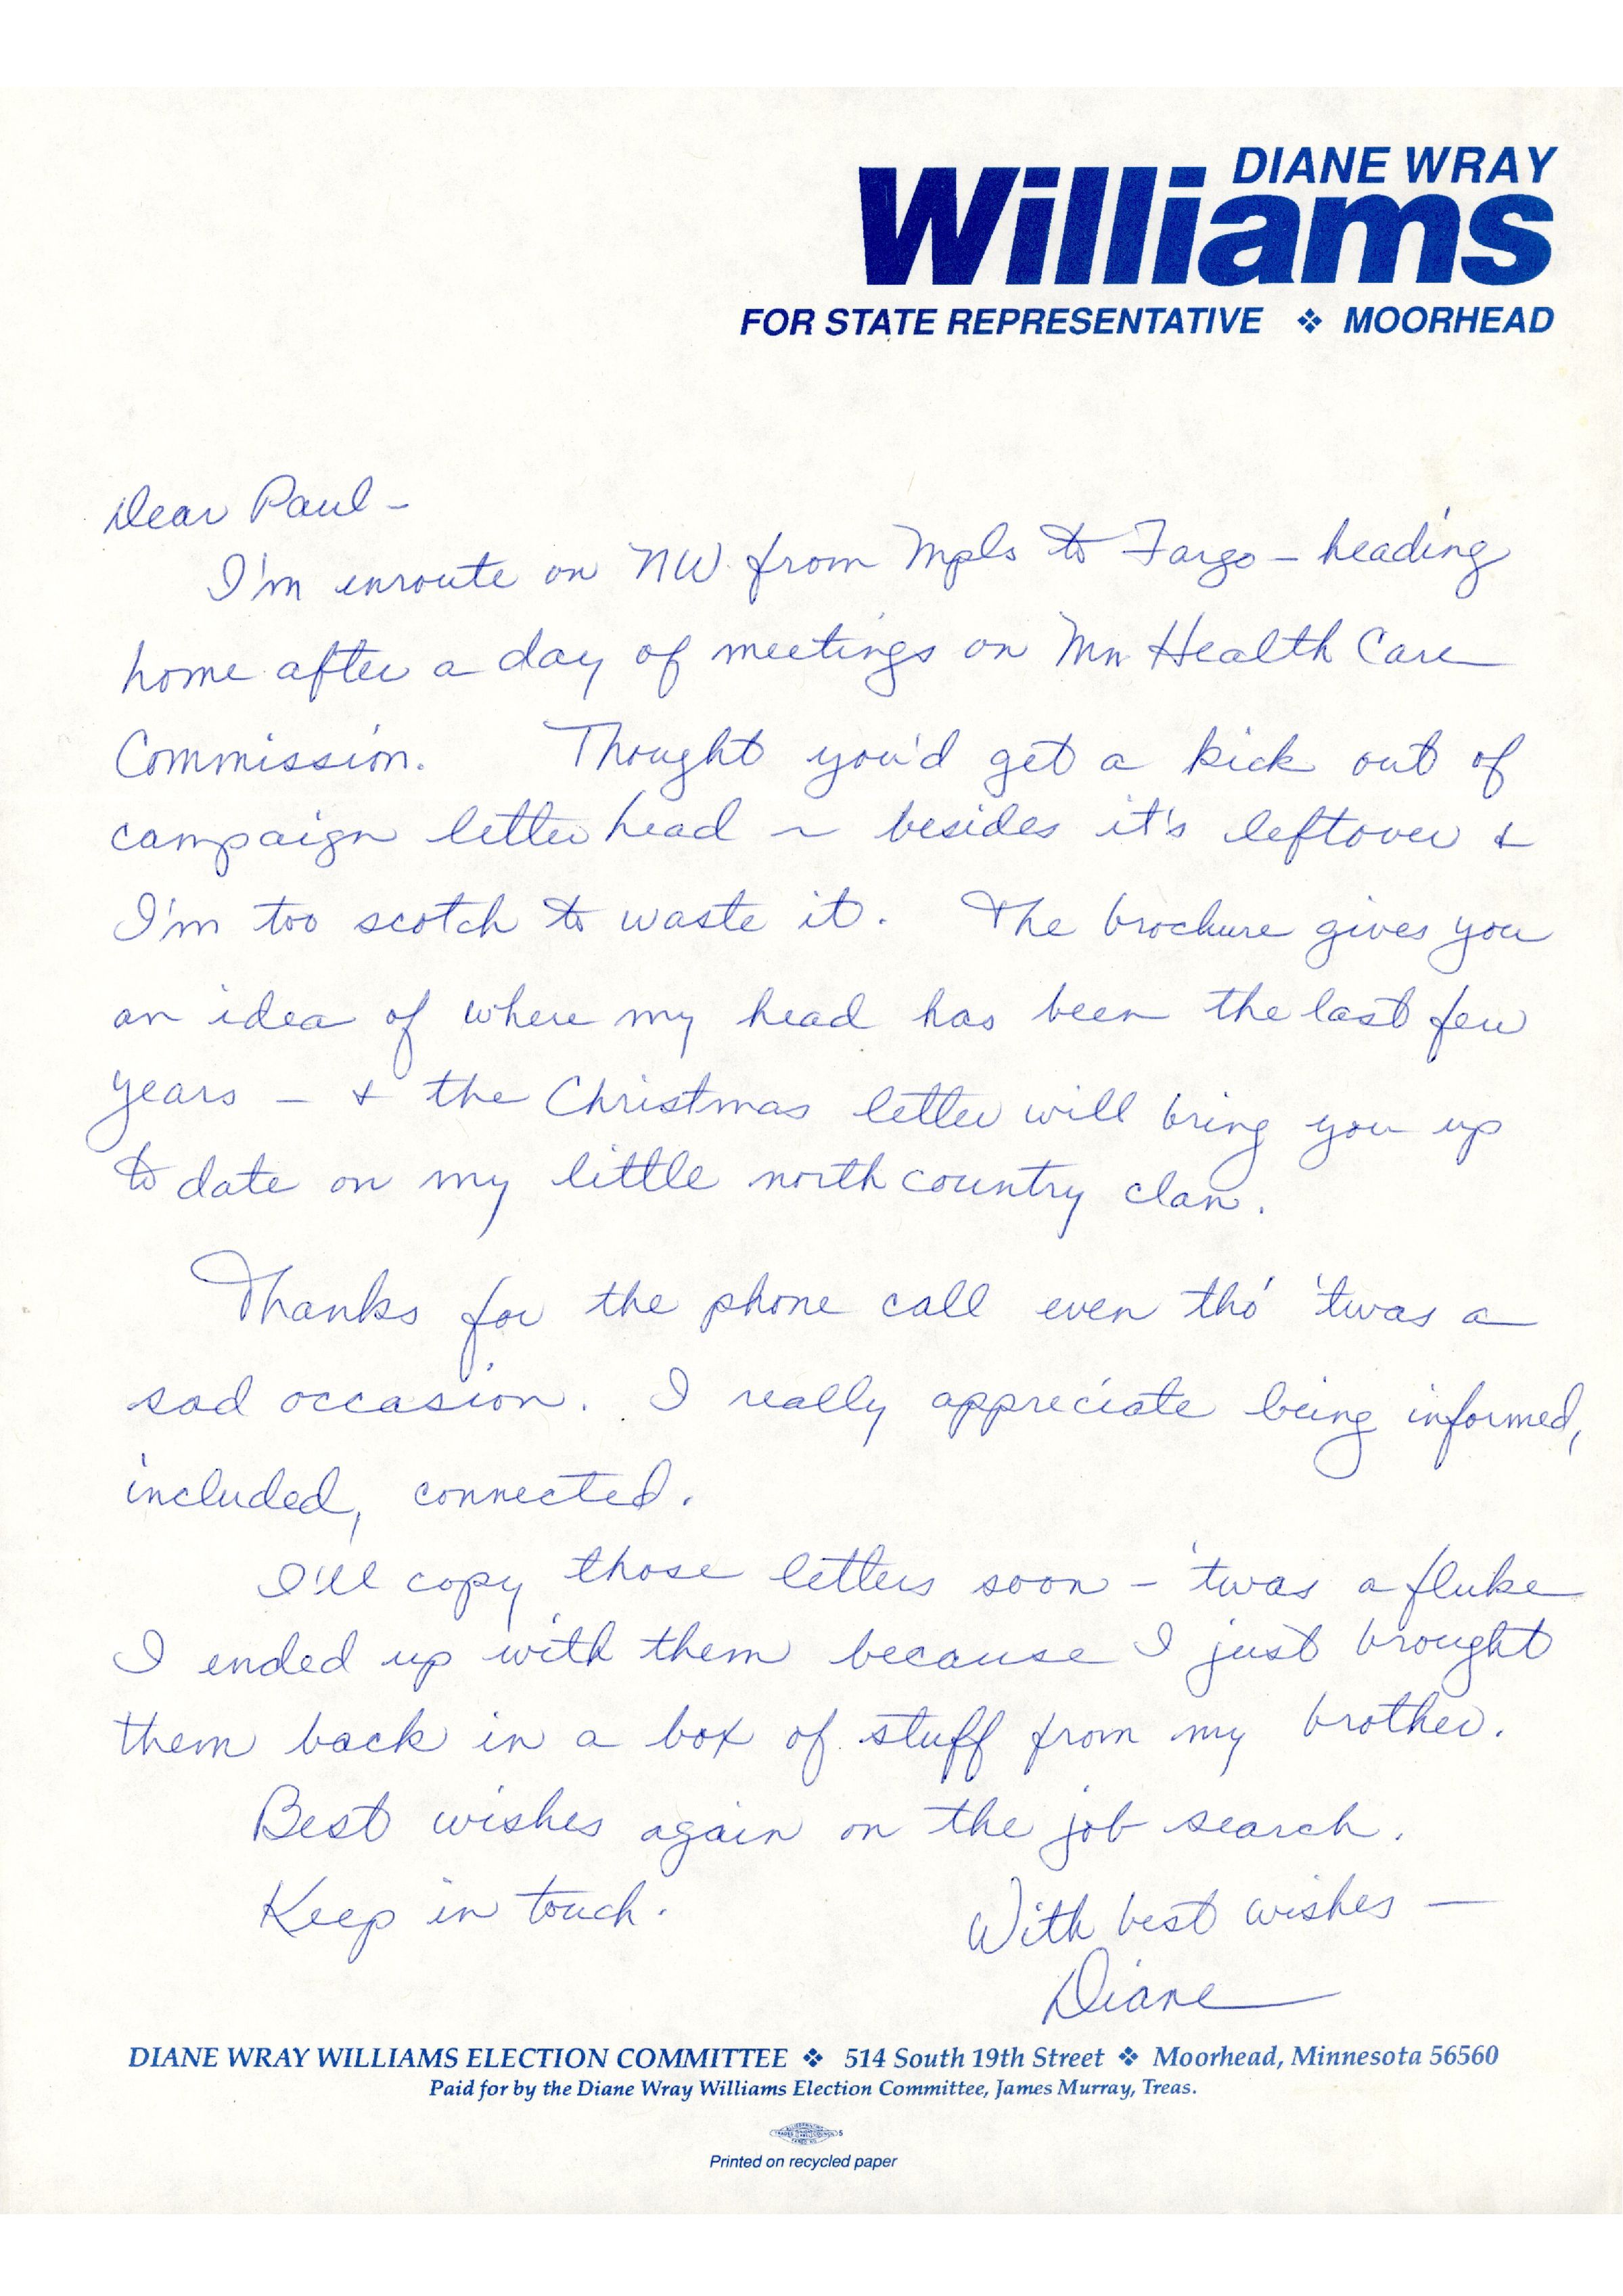 DIANE WRAY
Williams
FOR STATE REPRESENTATIVE ❖ MOORHEAD
Dear Paul –
I'm enroute on NW from Mpls to Fargo – heading
home after a day of meetings on Mn Health Care
Commission. Thought you'd get a kick out of
campaign letterhead ~ besides it's leftover &
I'm too scotch to waste it. The brochure gives you
an idea of where my head has been the last few
years – & the Christmas letter will bring you up
to date on my little north country clan.
Thanks for the phone call even tho' 'twas a
sad occasion. I really appreciate being informed,
included, connected.
I'll copy those letters soon – 'twas a fluke
I ended up with them because I just brought
them back in a box of stuff from my brother.
Best wishes again on the job search.
Keep in touch.
With best wishes —
Diane
DIANE WRAY WILLIAMS ELECTION COMMITTEE ❖ 514 South 19th Street ❖ Moorhead, Minnesota 56560
Paid for by the Diane Wray Williams Election Committee, James Murray, Treas.
5
Printed on recycled paper